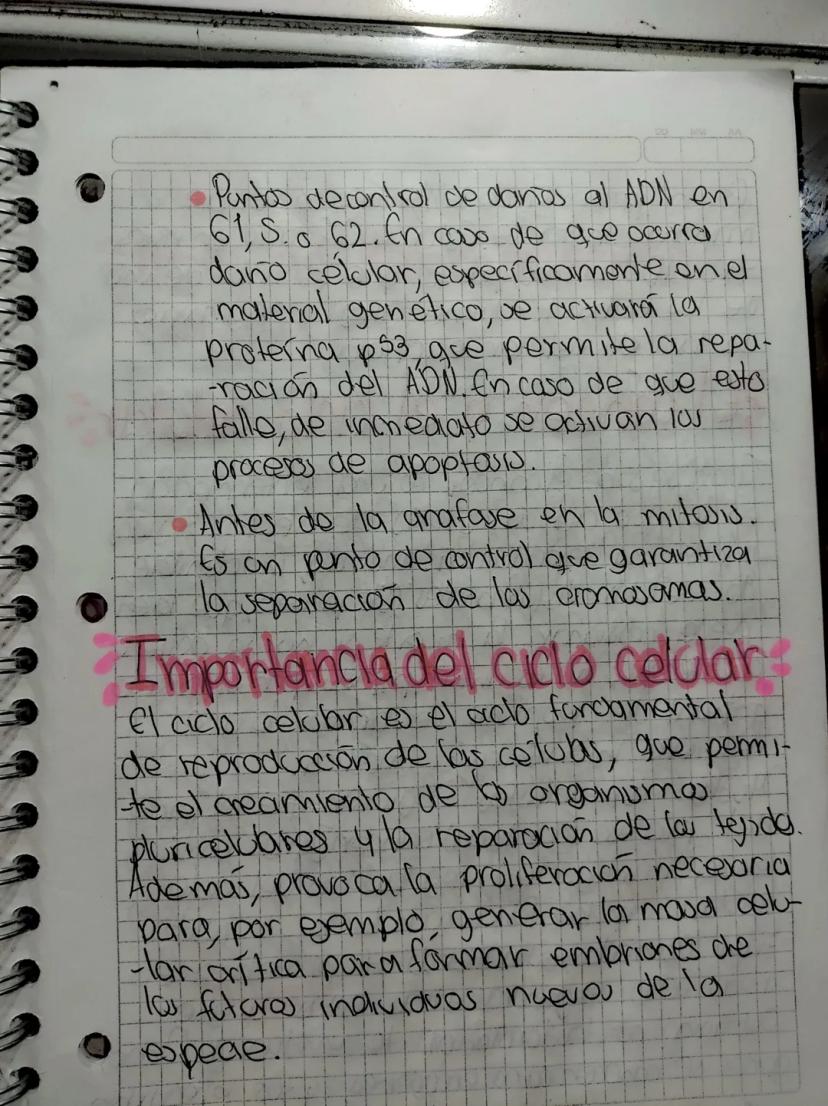 • Puntos de control de daños al ADN en
G1, S. o G2. En caso de que ocurra
daño celular, específicamente en el
material genético, se activará la
proteína p53, que permite la repa-
-ración del ADN. En caso de que esto
falle, de inmediato se activan los
procesos de apoptosis.
• Antes de la anafase en la mitosis.
Es un punto de control que garantiza
la separación de los cromosomas.
Importancia del ciclo celular
El ciclo celular es el ciclo fundamental
de reproducción de las células, que permi-
-te el creamiento de los organismos
pluricelulares y la reparación de los tejidos.
Además, provoca la proliferación necesaria
para, por ejemplo, generar la masa celu-
-lar crítica para formar embriones de
los futuros individuos nuevos de la
especie.